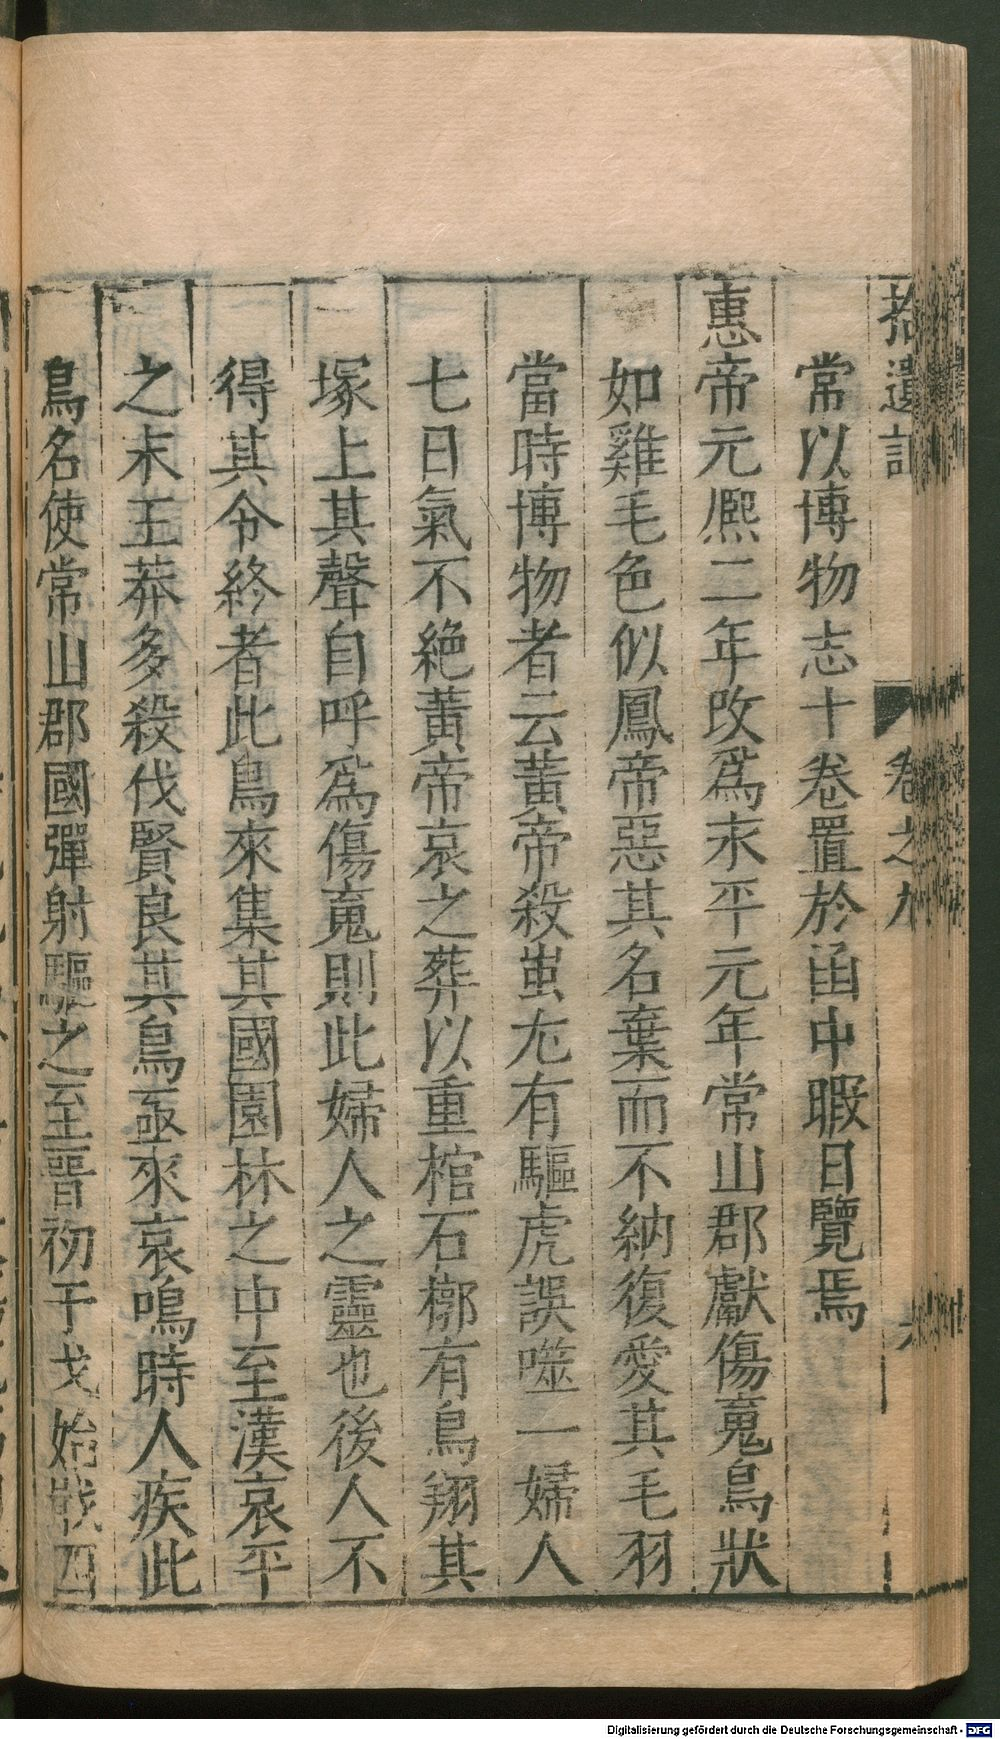 拾遺記 卷之九
常以博物志十卷置於函中暇日覽焉
惠帝元熈二年改爲永平元年常山郡獻傷䰟鳥狀
如雞毛色似鳳帝惡其名棄而不納復愛其毛羽
當時博物者云黃帝殺蚩尤有驅虎誤噬一婦人
七日氣不絶黃帝哀之葬以重棺石槨有鳥翔其
塚上其聲自呼爲傷䰟則此婦人之靈也後人不
得其令終者此鳥來集其國園林之中至漢哀平
之末王莽多殺伐賢良其鳥亟來哀鳴時人疾此
鳥名使常山郡國彈射驅之至晋初干戈始戢四
Digitalisierung gefördert durch die Deutsche Forschungsgemeinschaft - DFG